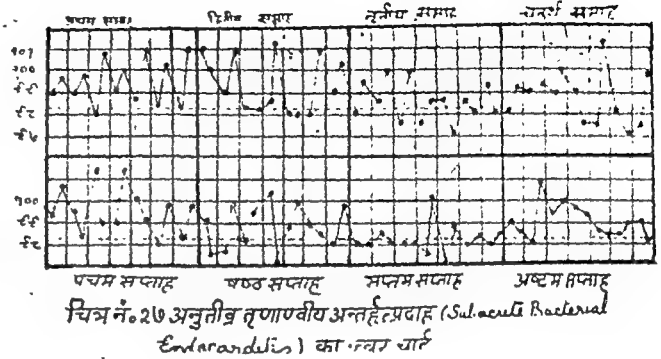 प्रथम सप्ताह द्वितीय सप्ताह तृतीय सप्ताह चतुर्थ सप्ताह
१०१
१००
९९
९८
९७
१००
९९
९८
पंचम सप्ताह षष्ठ सप्ताह सप्तम सप्ताह अष्टम सप्ताह
चित्र नं० २७ अनुतीव्र तृणाण्वीय अन्तर्हृत्प्रदाह (Subacute Bacterial
Endocarditis) का ज्वर चार्ट